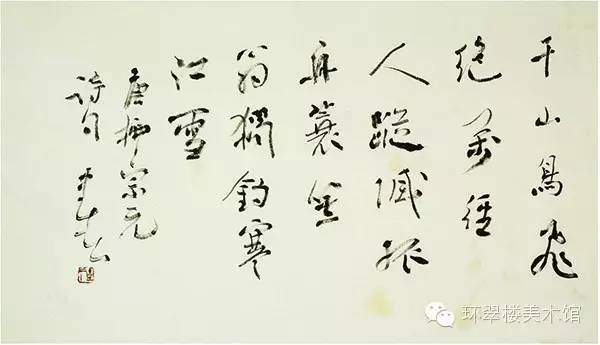 千山鳥飛
絕萬徑
人蹤滅孤
舟蓑笠
翁獨釣寒
江雪
唐柳宗元
詩句
环翠楼美术馆